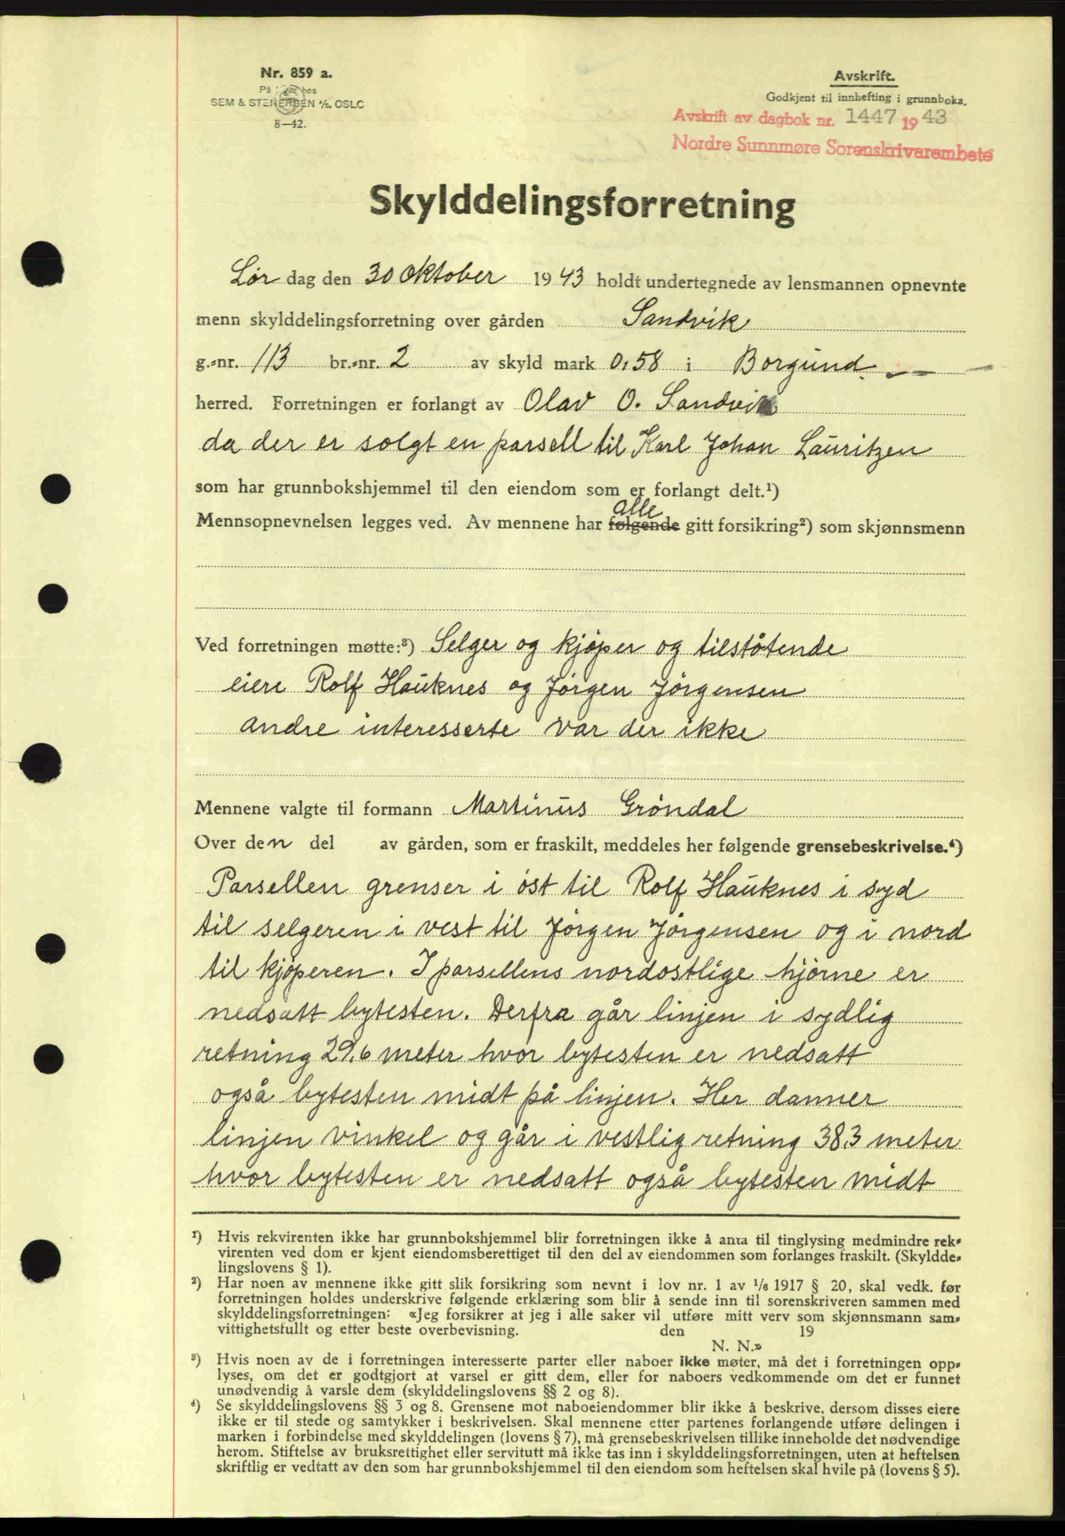 Nr. 859 a.
På hos
SEM & STENERSEN A/S. OSLO
8—42.
Avskrift.
Godkjent til innhefting i grunnboka.
Avskrift av dagbok nr. 1447 1943
Nordre Sunnmøre Sorenskrivarembete
Skylddelingsforretning
Lør dag den 30 oktober 1943 holdt undertegnede av lensmannen opnevnte
menn skylddelingsforretning over gården Sandvik
g.-nr. 113 br.-nr. 2 av skyld mark 0,58 i Borgund
herred. Forretningen er forlangt av Olav O. Sandvik
da der er solgt en parsell til Karl Johan Lauritzen
som har grunnbokshjemmel til den eiendom som er forlangt delt.¹)
alle
Mennsopnevnelsen legges ved. Av mennene har følgende gitt forsikring²) som skjønnsmenn
Ved forretningen møtte:³) Selger og kjøper og tilstøtende
eiere Rolf Hauknes og Jørgen Jørgensen
andre interesserte var der ikke
Mennene valgte til formann Martinus Grøndal
Over den del av gården, som er fraskilt, meddeles her følgende grensebeskrivelse.⁴)
Parsellen grenser i øst til Rolf Hauknes i syd
til selgeren i vest til Jørgen Jørgensen og i nord
til kjøperen. I parsellens nordostlige hjørne er
nedsatt bytesten. Derfra går linjen i sydlig
retning 29,6 meter hvor bytesten er nedsatt
også bytesten midt på linjen. Her danner
linjen vinkel og går i vestlig retning 38,3 meter
hvor bytesten er nedsatt også bytesten midt
¹) Hvis rekvirenten ikke har grunnbokshjemmel blir forretningen ikke å anta til tinglysing medmindre rek-
virenten ved dom er kjent eiendomsberettiget til den del av eiendommen som forlanges fraskilt. (Skyldde-
lingslovens § 1).
²) Har noen av mennene ikke gitt slik forsikring som nevnt i lov nr. 1 av 1/6 1917 § 20, skal vedk. før
forretningen holdes underskrive følgende erklæring som blir å sende inn til sorenskriveren sammen med
skylddelingsforretningen: «Jeg forsikrer at jeg i alle saker vil utføre mitt verv som skjønnsmann sam-
vittighetsfullt og etter beste overbevisning. den 19
N. N.»
³) Hvis noen av de i forretningen interesserte parter eller naboer ikke møter, må det i forretningen opp-
lyses, om det er godtgjort at varsel er gitt dem, eller for naboers vedkommende om det er funnet
unødvendig å varsle dem (skylddelingslovens §§ 2 og 8).
⁴) Se skylddelingslovens §§ 3 og 8. Grensene mot naboeiendommer blir ikke å beskrive, dersom disses eiere
ikke er til stede og samtykker i beskrivelsen. Skal mennene etter partenes forlangende utføre delingen i
marken i forbindelse med skylddelingen (lovens § 7), må grensebeskrivelsen tillike inneholde det nødvendige
herom. Stiftelse av bruksrettighet eller servitutt må ikke tas inn i skylddelingsforretningen, uten at heftelsen
skriftlig er vedtatt av den som har grunnbokshjemmel til den eiendom som heftelsen skal hvile på (lovens § 5).